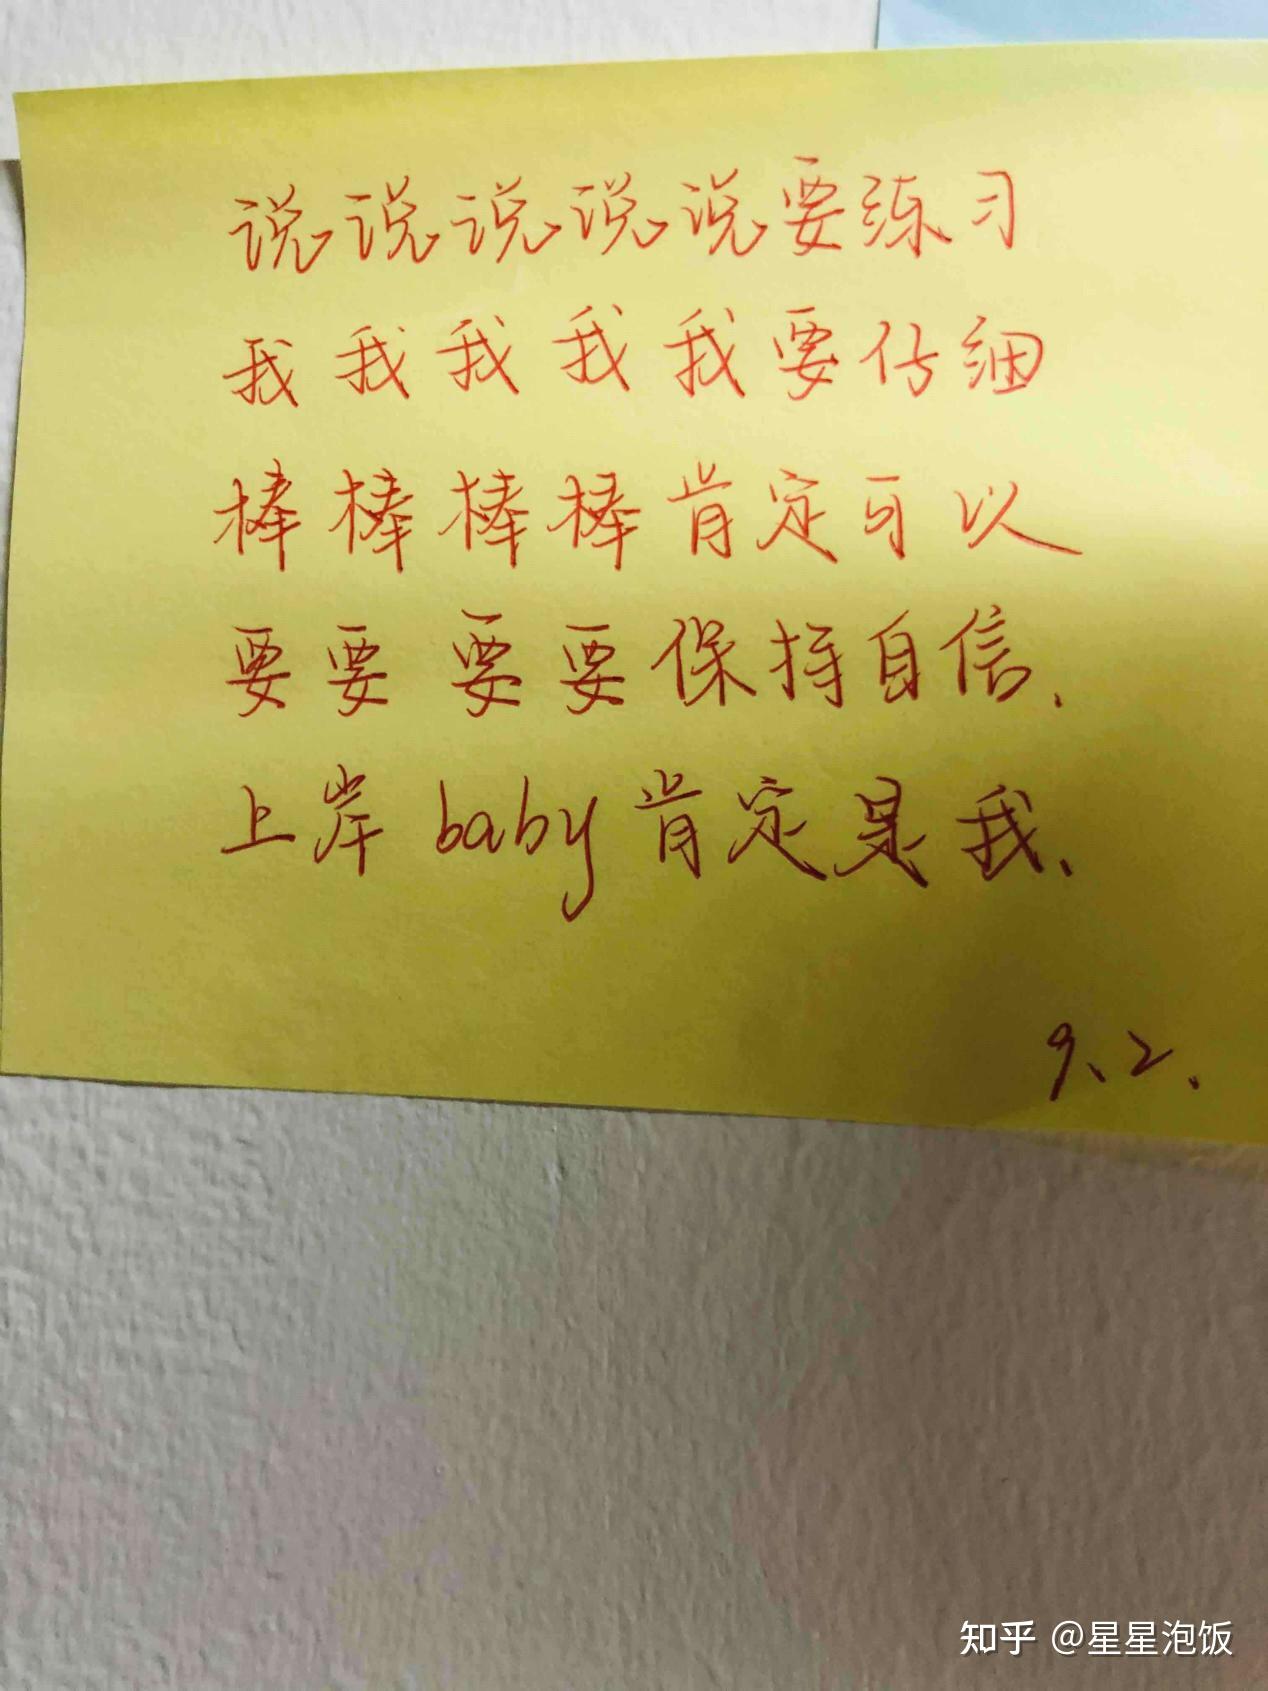 说说说说说要练习
我我我我我要仔细
棒棒棒棒肯定可以
要要要要保持自信.
上岸baby肯定是我、
9、2.
知乎 @星星泡饭